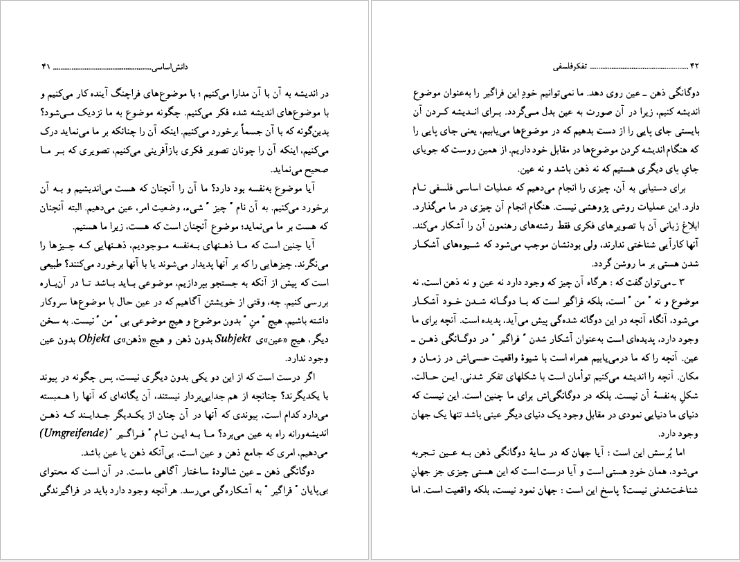 دانش‌اساسی ............................................................ ۴۱
در اندیشه به آن با آن مدارا می‌کنیم ؛ با موضوع‌های فراچنگ آینده کار می‌کنیم و
با موضوع‌های اندیشه شده فکر می‌کنیم. چگونه موضوع به ما نزدیک می‌شود؟
بدین‌گونه که با آن جسماً برخورد می‌کنیم. اینکه آن را چنانکه بر ما می‌نماید درک
می‌کنیم، اینکه آن را چونان تصویر فکری بازآفرینی می‌کنیم، تصویری که بر ما
صحیح می‌نماید.
آیا موضوع به‌نفسه بود دارد؟ ما آن را آنچنان که هست می‌اندیشیم و به آن
برخورد می‌کنیم. به آن نام " چیز " شیء، وضعیت امر، عین می‌دهیم. البته آنچنان
که هست بر ما می‌نماید؛ موضوع آنچنان است که هست، زیرا ما هستیم.
آیا چنین است که ما ذهنهای به‌نفسه موجودیم، ذهنهایی که چیزها را
می‌نگرند، چیزهایی را که بر آنها پدیدار می‌شوند یا با آنها برخورد می‌کنند؟ طبیعی
است که پیش از آنکه به جستجو بپردازیم، موضوعی باید باشد تا در آن‌باره
بررسی کنیم. چه، وقتی از خویشتن آگاهیم که در عین حال با موضوع‌ها سروکار
داشته باشیم. هیچ " من" بدون موضوع و هیچ موضوعی بی "من " نیست. به سخن
دیگر، هیچ «عین»‌ی Subjekt بدون ذهن و هیچ «ذهن»‌ی Objekt بدون عین
وجود ندارد.
اگر درست است که از این دو یکی بدون دیگری نیست، پس چگونه در پیوند
با یکدیگرند؟ چنانچه از هم جدایی‌بردار نیستند، آن یگانه‌ای که آنها را همبسته
می‌دارد کدام است، پیوندی که آنها در آن چنان از یکدیگر جدایند که ذهن
اندیشه‌ورانه راه به عین می‌برد؟ ما به این نام " فراگیر " (Umgreifende)
می‌دهیم، امری که جامع ذهن و عین است، بی‌آنکه ذهن یا عین باشد.
دوگانگی ذهن ـ عین شالودهٔ ساختار آگاهی ماست. در آن است که محتوای
بی‌پایان " فراگیر " به آشکاره‌گی می‌رسد. هرآنچه وجود دارد باید در فراگیرندگی
۴۲ ............................................................ تفکرفلسفی
دوگانگی ذهن ـ عین روی دهد. ما نمی‌توانیم خودِ این فراگیر را به‌عنوان موضوع
اندیشه کنیم، زیرا در آن صورت به عین بدل می‌گردد. برای اندیشه کردن آن
بایستی جای پایی را از دست بدهیم که در موضوع‌ها می‌یابیم، یعنی جای پایی را
که هنگام اندیشه کردن موضوع‌ها در مقابل خود داریم. از همین روست که جویای
جای پای دیگری هستیم که نه ذهن باشد و نه عین.
برای دستیابی به آن، چیزی را انجام می‌دهیم که عملیات اساسی فلسفی نام
دارد. این عملیات روشی پژوهشی نیست. هنگام انجام آن چیزی در ما می‌گذارد.
ابلاغ زبانی آن با تصویرهای فکری فقط رشته‌های رهنمون آن را آشکار می‌کند.
آنها کارآیی شناختی ندارند، ولی بودنشان موجب می‌شود که شیوه‌های آشکار
شدن هستی بر ما روشن گردد.
۳ ـ می‌توان گفت که : هرگاه آن چیز که وجود دارد نه عین و نه ذهن است، نه
موضوع و نه " من " است، بلکه فراگیر است که با دوگانه شدن خود آشکار
می‌شود، آنگاه آنچه در این دوگانه شده‌گی پیش می‌آید، پدیده است. آنچه برای ما
وجود دارد، پدیده‌ای است به‌عنوان آشکار شدن " فراگیر " در دوگانگی ذهن ـ
عین. آنچه را که ما درمی‌یابیم همراه است با شیوهٔ واقعیت حسی‌اش در زمان و
مکان. آنچه را اندیشه می‌کنیم توأمان است با شکلهای تفکر شدنی. این حالت،
شکلِ به‌نفسهٔ آن نیست. بلکه در دوگانگی‌اش برای ما چنین است. این نیست که
دنیای ما دنیایی نمودی در مقابل وجود یک دنیای دیگر عینی باشد تنها یک جهان
وجود دارد.
اما پُرسش این است : آیا جهان که در سایهٔ دوگانگی ذهن به عین تجربه
می‌شود، همان خودِ هستی است و آیا درست است که این هستی چیزی جز جهانِ
شناخت‌شدنی نیست؟ پاسخ این است : جهان نمود نیست، بلکه واقعیت است. اما